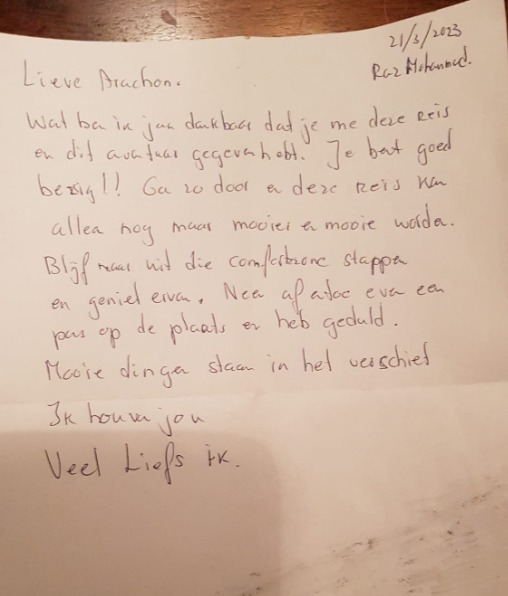 21/3/2023
Raz Mohammad.
Lieve Arachon.
Wat ben ik jou dankbaar dat je me deze Reis
en dit avontuur gegeven hebt. Je bent goed
bezig!! Ga zo door en deze Reis kan
alleen nog maar mooier en mooie worden.
Blijf maar uit die comfortzone stappen
en geniet ervan. Neem af en toe even een
pas op de plaats en heb geduld.
Mooie dingen staan in het verschiet
Ik hou van jou
Veel Liefs ik.